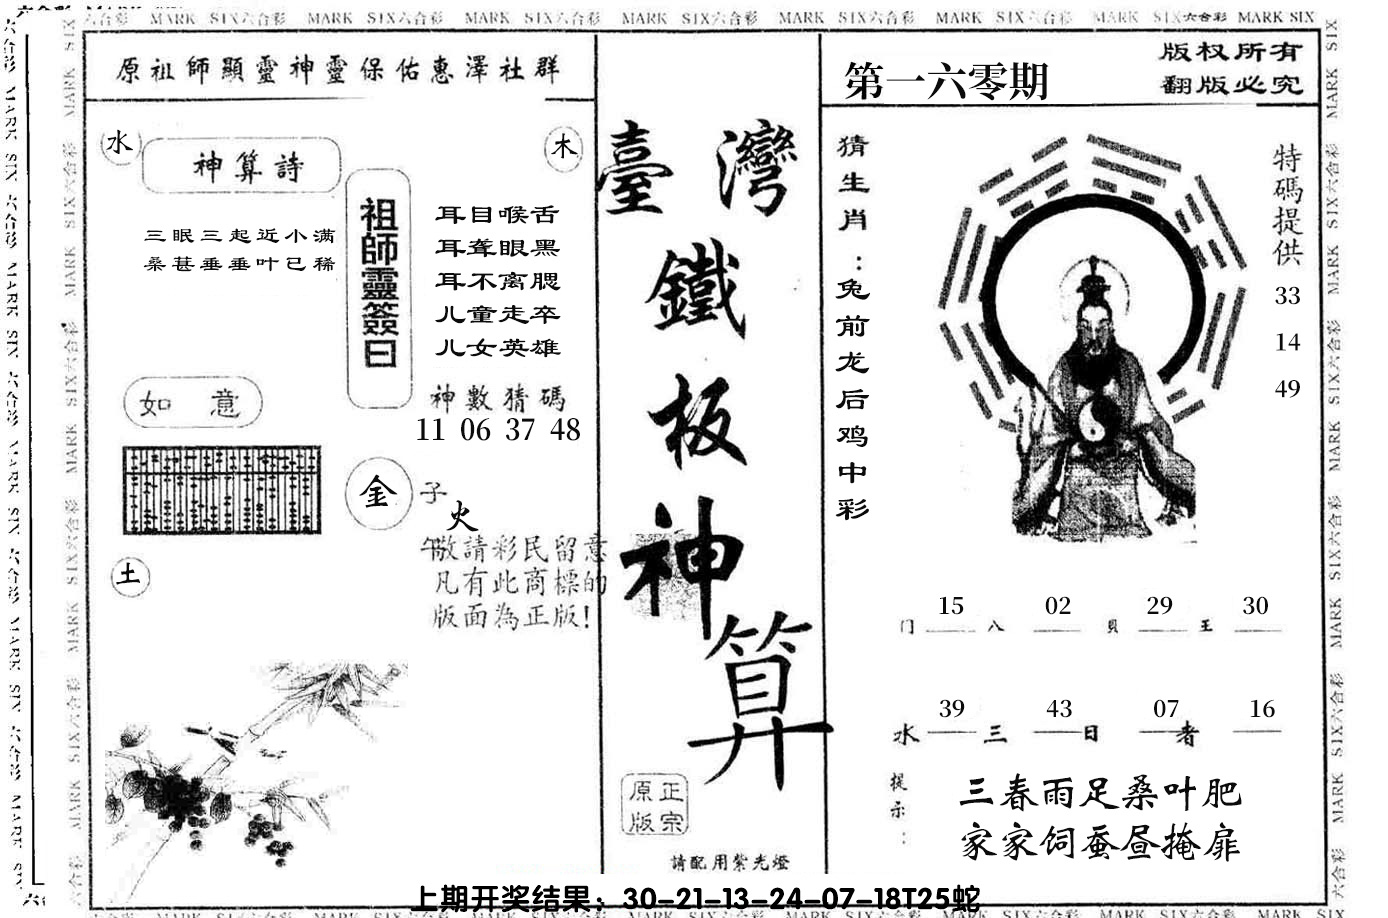 MARK SIX六合彩 MARK SIX六合彩 MARK SIX六合彩 MARK SIX六合彩 MARK SIX六合彩 MARK SIX六合彩 MARK SIX六合彩 MARK SIX
原祖師顯靈神靈保佑惠澤社群
水
神算詩
木
三眠三起近小满
桑葚垂垂叶已稀
祖師靈簽曰
耳目喉舌
耳聋眼黑
耳不离腮
儿童走卒
儿女英雄
神數猜碼
11 06 37 48
如 意
金
子
火
午
敬請彩民留意
凡有此商標的
版面為正版!
土
臺灣
鐵
板
神
算
正宗
原版
請配用紫光燈
第一六零期
版权所有
翻版必究
猜生肖:兔前龙后鸡中彩
特碼提供
33
14
49
15 02 29 30
门 八 貝 王
39 43 07 16
水 三 日 者
提示:
三春雨足桑叶肥
家家饲蚕昼掩扉
上期开奖结果：30-21-13-24-07-18T25蛇